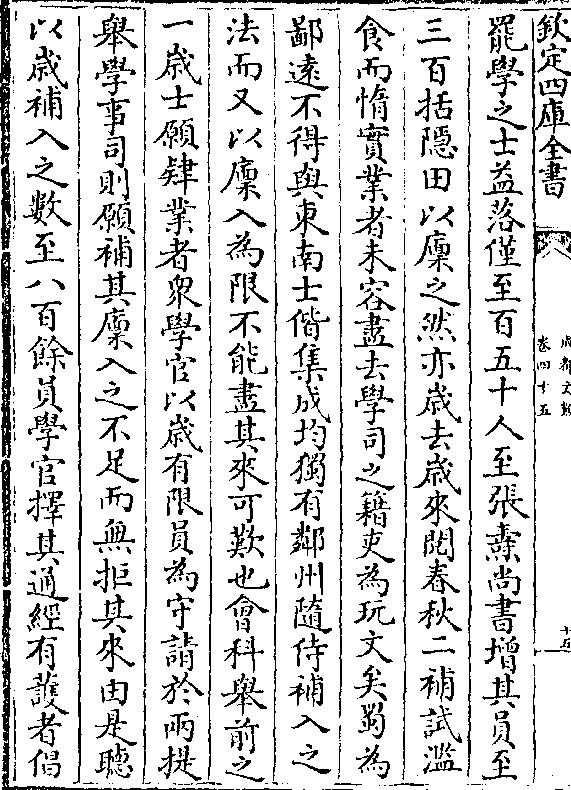 欽定四庫全書
成都文類
卷四十五
十五
罷學之士益落僅至百五十人至張燾尚書增其員至
三百括隱田以廩之然亦歲去歲來閱春秋二補試濫
食而惰實業者未容盡去學司之籍吏為玩文矣蜀為
鄙遠不得與東南士偕集成均獨有鄰州隨侍補入之
法而又以廩入為限不能盡其來可歎也會科舉前之
一歲士願肄業者衆學官以歲有限員為守請於兩提
舉學事司則願補其廩入之不足而無拒其來由是聽
以歲補入之數至八百餘員學官擇其通經有䕶者倡